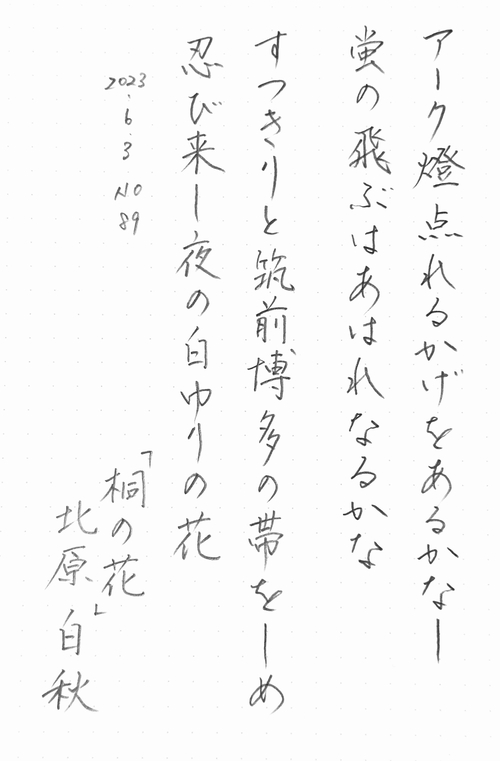 アーク燈点れるかげをあるかなし
蛍の飛ぶはあはれなるかな
すつきりと筑前博多の帯をしめ
忍び来し夜の白ゆりの花
2023.6.3 NO 89
「桐の花」
北原白秋